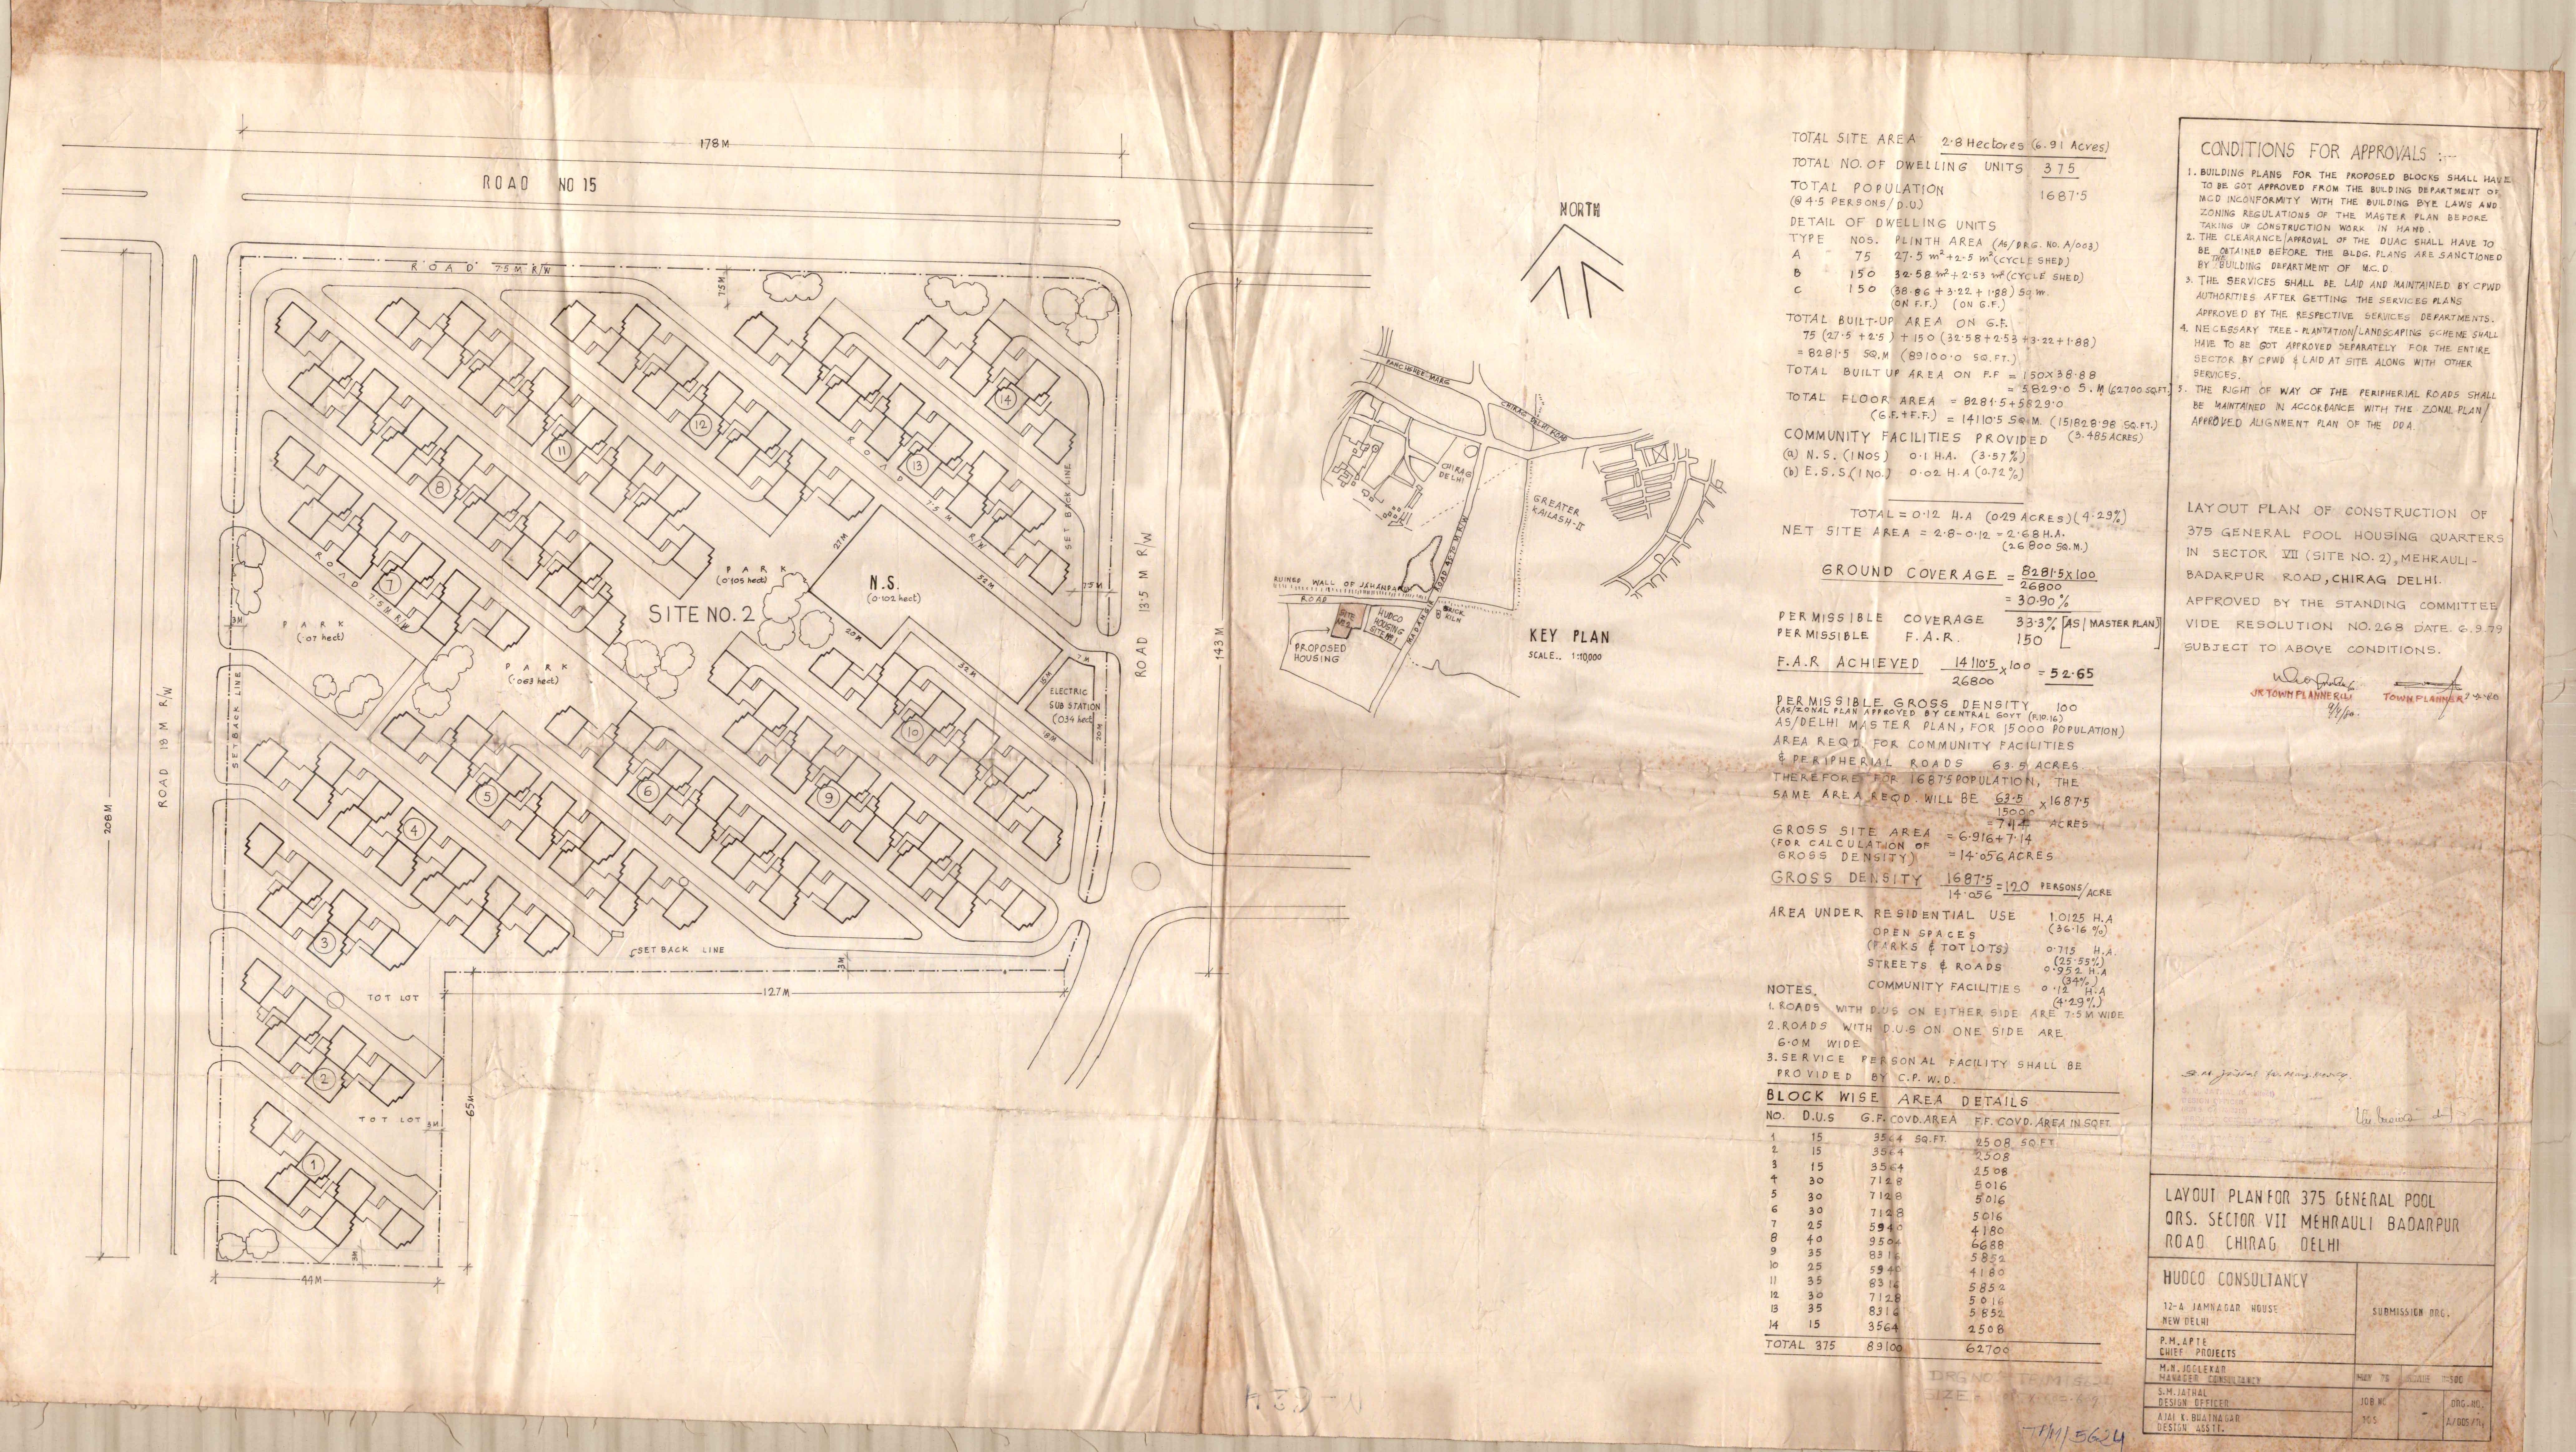 178M
ROAD NO 15
ROAD 7.5 M R/W
7.5M
14
12
11
13
8
7
ROAD 7.5 M R/W
ROAD 7.5 M R/W
SET BACK LINE
7.5M
ROAD 13.5 M R/W
143 M
27M
32M
PARK
(0.105 hect)
N.S.
(0.102 hect)
SITE NO. 2
20M
32M
3M
PARK
(.07 hect)
PARK
(.063 hect)
7M
15M
ELECTRIC
SUB STATION
(.034 hect)
18M
20M
SET BACK LINE
ROAD 18 M R/W
208M
10
5
6
9
4
3
SET BACK LINE
3M
127M
TOT LOT
2
TOT LOT
3M
65M
1
3M
44M
NORTH
PANCHSHEEL MARG
CHIRAG DELHI ROAD
CHIRAG
DELHI
GREATER
KAILASH-II
RUINED WALL OF JAHANPANAH
ROAD
SITE
NO.2
HUDCO
HOUSING
SITE NO 1
BRICK
KILN
PROPOSED
HOUSING
KEY PLAN
SCALE.. 1:10,000
TOTAL SITE AREA 2.8 Hectores (6.91 Acres)
TOTAL NO. OF DWELLING UNITS 375
TOTAL POPULATION 1687.5
(@ 4.5 PERSONS/D.U.)
DETAIL OF DWELLING UNITS
TYPE NOS. PLINTH AREA (AS/DRG. NO. A/003)
A 75 27.5 m²+2.5 m² (CYCLE SHED)
B 150 32.58 m²+2.53 m² (CYCLE SHED)
C 150 (38.86 + 3.22 + 1.88) Sq m.
(ON F.F.) (ON G.F.)
TOTAL BUILT-UP AREA ON G.F.
75 (27.5 + 2.5) + 150 (32.58+2.53+3.22+1.88)
= 8281.5 SQ.M (89100.0 SQ.FT.)
TOTAL BUILT UP AREA ON F.F = 150X38.88
= 5829.0 S.M (62700 SQ.FT.)
TOTAL FLOOR AREA = 8281.5+5829.0
(G.F.+F.F.) = 14110.5 SQ.M. (151828.98 SQ.FT.)
(3.485 ACRES)
COMMUNITY FACILITIES PROVIDED
(a) N.S. (1 NOS) 0.1 H.A. (3.57%)
(b) E.S.S. (1 NO.) 0.02 H.A (0.72%)
TOTAL = 0.12 H.A (0.29 ACRES) (4.29%)
NET SITE AREA = 2.8-0.12 = 2.68 H.A.
(26800 SQ.M.)
GROUND COVERAGE = 8281.5x100
26800
= 30.90 %
PERMISSIBLE COVERAGE 33.3% [AS/MASTER PLAN]
PERMISSIBLE F.A.R. 150
F.A.R ACHIEVED 14110.5 x100 = 52.65
26800
PERMISSIBLE GROSS DENSITY 100
(AS/ZONAL PLAN APPROVED BY CENTRAL GOVT (F.10.16)
AS/DELHI MASTER PLAN, FOR 15000 POPULATION)
AREA REQD. FOR COMMUNITY FACILITIES
& PERIPHERIAL ROADS 63.5 ACRES.
THEREFORE FOR 1687.5 POPULATION, THE
SAME AREA REQD. WILL BE 63.5 x 1687.5
15000
= 7.14 ACRES
GROSS SITE AREA = 6.916+7.14
(FOR CALCULATION OF
GROSS DENSITY) = 14.056 ACRES
GROSS DENSITY 1687.5 = 120 PERSONS/ACRE
14.056
AREA UNDER RESIDENTIAL USE 1.0125 H.A
(36.16 %)
OPEN SPACES
(PARKS & TOT LOTS) 0.715 H.A.
(25.55%)
STREETS & ROADS 0.952 H.A
(34%)
COMMUNITY FACILITIES 0.12 H.A
(4.29%)
NOTES.
1. ROADS WITH D.US ON EITHER SIDE ARE 7.5 M WIDE
2. ROADS WITH D.U.S ON ONE SIDE ARE
6.0M WIDE
3. SERVICE PERSONAL FACILITY SHALL BE
PROVIDED BY C.P.W.D.
BLOCK WISE AREA DETAILS
NO. D.U.S G.F. COVD. AREA F.F. COVD. AREA IN SQFT.
1 15 3564 SQ.FT. 2508 SQ FT
2 15 3564 2508
3 15 3564 2508
4 30 7128 5016
5 30 7128 5016
6 30 7128 5016
7 25 5940 4180
8 40 9504 6688
9 35 8316 5852
10 25 5940 4180
11 35 8316 5852
12 30 7128 5016
13 35 8316 5852
14 15 3564 2508
TOTAL 375 89100 62700
TP/M/5624
CONDITIONS FOR APPROVALS :--
1. BUILDING PLANS FOR THE PROPOSED BLOCKS SHALL HAVE
TO BE GOT APPROVED FROM THE BUILDING DEPARTMENT OF
MCD INCONFORMITY WITH THE BUILDING BYE LAWS AND
ZONING REGULATIONS OF THE MASTER PLAN BEFORE
TAKING UP CONSTRUCTION WORK IN HAND.
2. THE CLEARANCE/APPROVAL OF THE DUAC SHALL HAVE TO
BE OBTAINED BEFORE THE BLDG. PLANS ARE SANCTIONED
BY THE BUILDING DEPARTMENT OF M.C.D.
3. THE SERVICES SHALL BE LAID AND MAINTAINED BY CPWD
AUTHORITIES AFTER GETTING THE SERVICES PLANS
APPROVED BY THE RESPECTIVE SERVICES DEPARTMENTS.
4. NECESSARY TREE-PLANTATION/LANDSCAPING SCHEME SHALL
HAVE TO BE GOT APPROVED SEPARATELY FOR THE ENTIRE
SECTOR BY CPWD & LAID AT SITE ALONG WITH OTHER
SERVICES.
5. THE RIGHT OF WAY OF THE PERIPHERIAL ROADS SHALL
BE MAINTAINED IN ACCORDANCE WITH THE ZONAL PLAN/
APPROVED ALIGNMENT PLAN OF THE DDA.
LAYOUT PLAN OF CONSTRUCTION OF
375 GENERAL POOL HOUSING QUARTERS
IN SECTOR VII (SITE NO. 2), MEHRAULI-
BADARPUR ROAD, CHIRAG DELHI.
APPROVED BY THE STANDING COMMITTEE
VIDE RESOLUTION NO. 268 DATE. 6.9.79
SUBJECT TO ABOVE CONDITIONS.
JR TOWN PLANNER TOWN PLANNER
LAYOUT PLAN FOR 375 GENERAL POOL
QRS. SECTOR VII MEHRAULI BADARPUR
ROAD CHIRAG DELHI
HUDCO CONSULTANCY
12-A JAMNAGAR HOUSE
NEW DELHI
SUBMISSION DRG.
P.M. APTE
CHIEF PROJECTS
M.N. JOGLEKAR
MANAGER CONSULTANCY
S.M. JATHAL
DESIGN OFFICER
JOB NO.
DRG. NO.
AJAI K. BHATNAGAR
DESIGN ASSTT.